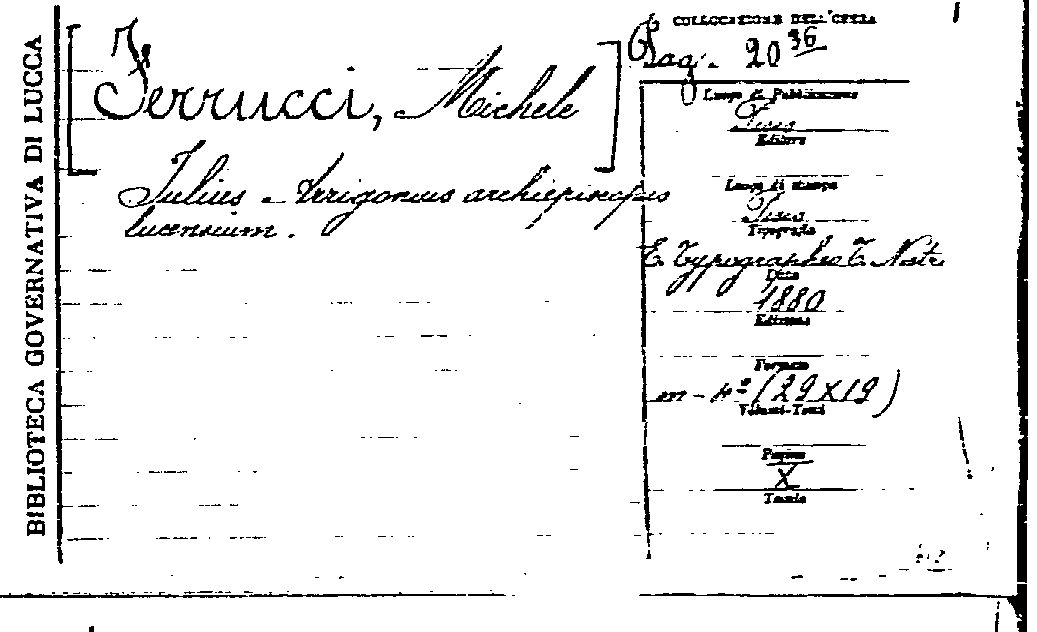 BIBLIOTECA GOVERNATIVA DI LUCCA
[Ferrucci, Michele]
Julius - Arrigonius archiepiscopus
lucensium.
COLLOCAZIONE DELL'OPERA
Pag. 20 36
Luogo di Pubblicazione
Pisis
Editore
Luogo di stampa
Pisis
Tipografia
E Typographeo T. Nistri
Data
1880
Edizione
Formato
m - 4º (29 x 19)
Volumi-Tomi
Pagine
X
Tavole